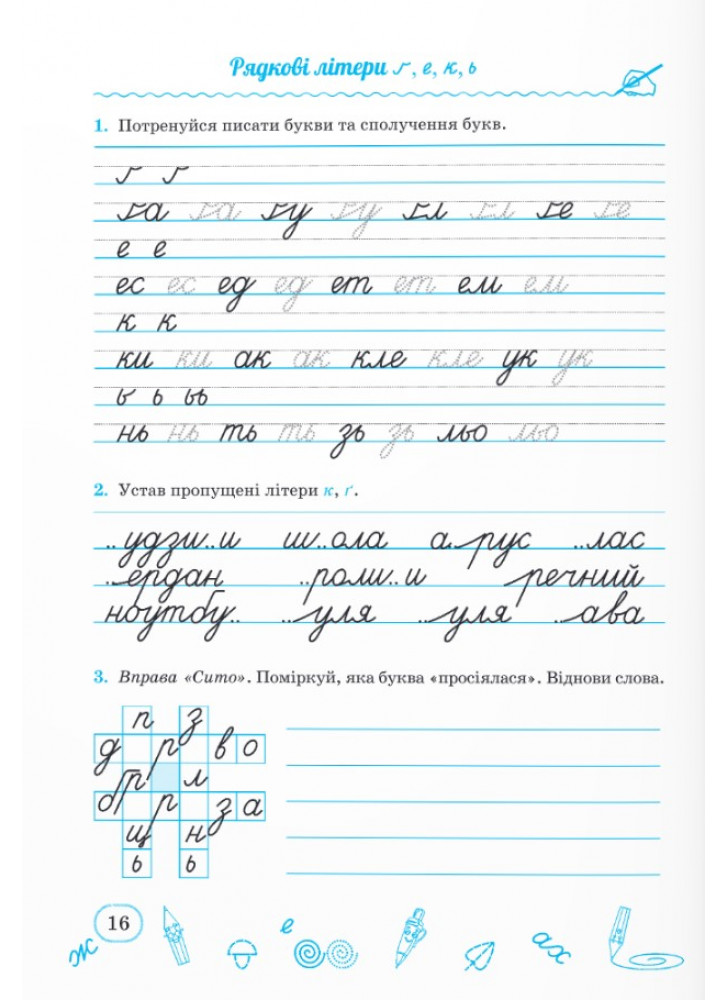 Рядкові літери ґ, е, к, ь
1. Потренуйся писати букви та сполучення букв.
ґ ґ
ґа ґа ґу ґу ґл ґл ґе ґе
е е
ес ес ед ед ет ет ем ем
к к
ки ки ак ак кле кле ук ук
ь ь ьь
нь нь ть ть зь зь льо льо
2. Устав пропущені літери к, ґ.
..удзи..и ш..ола а..рус ..лас
..ердан ..роли..и ..речний
ноутбу.. ..уля ..уля ..ава
3. Вправа «Сито». Поміркуй, яка буква «просіялася». Віднови слова.
п з
д р в о
т л
б р з а
щ н
ь ь
16
е
ж ах